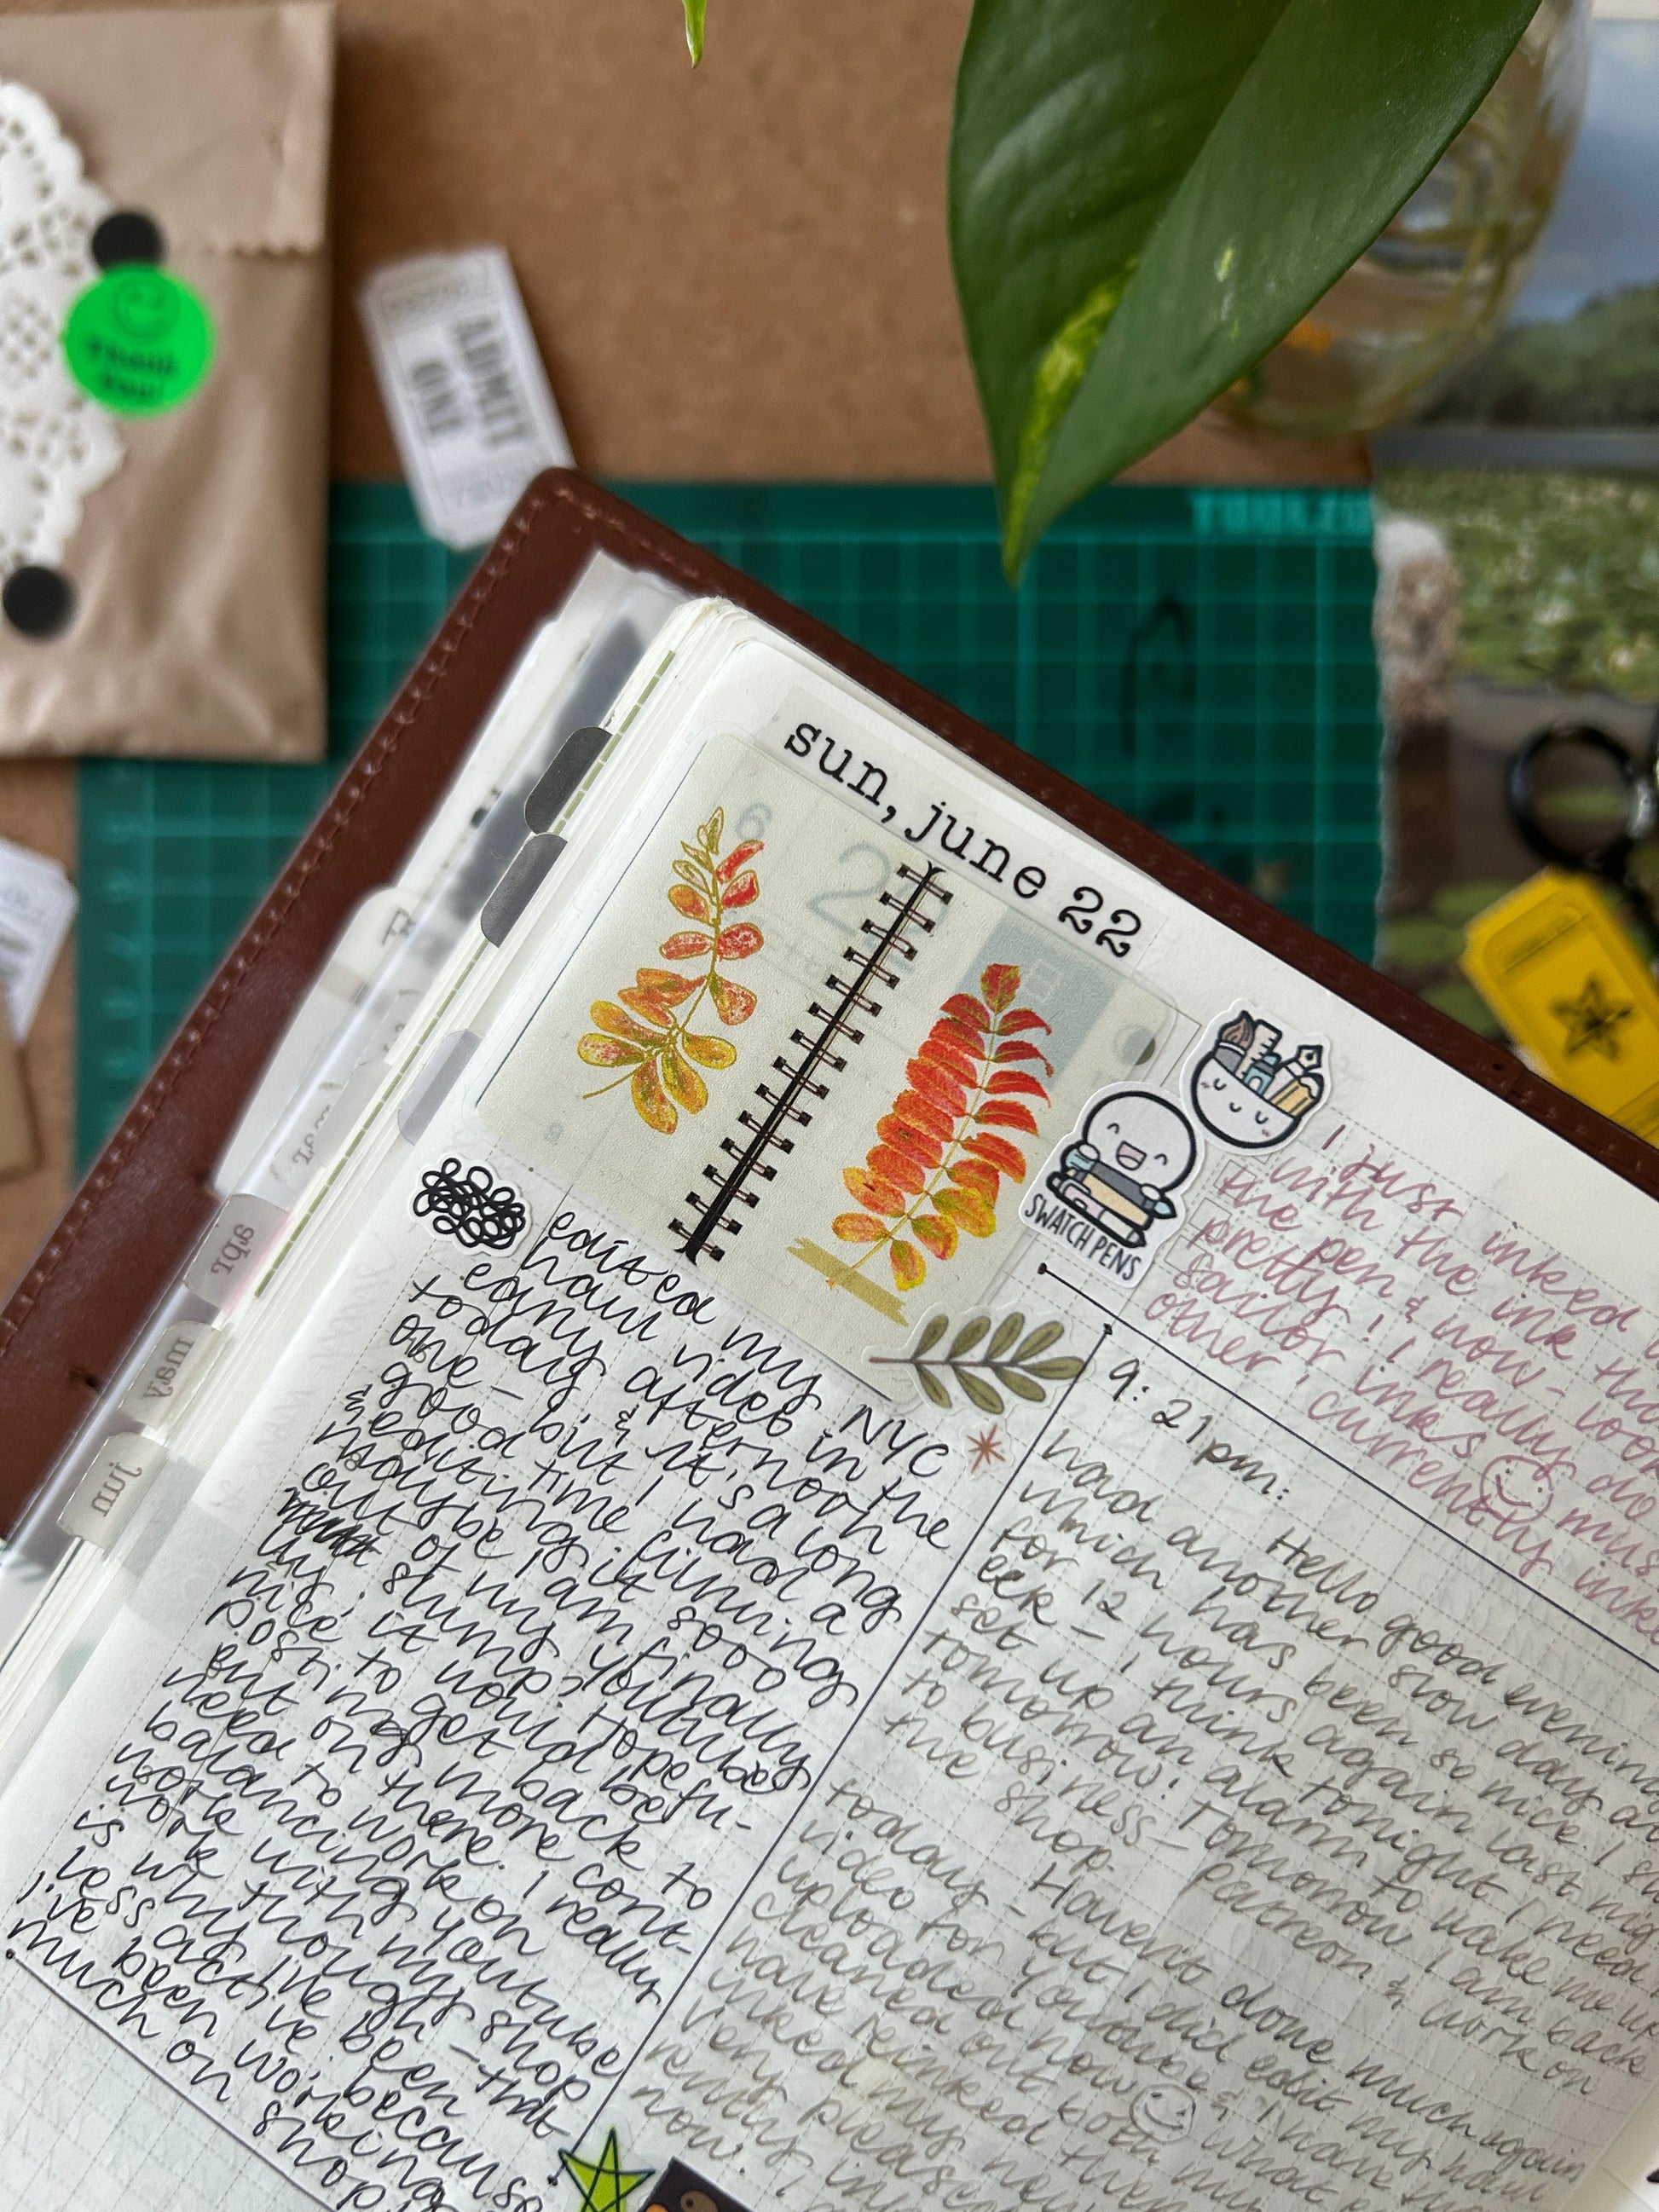 THANK YOU!
ADMIT ONE
sun, june 22
6
22
SWATCH PENS
I just inked
with the ink
the pen & now- look
pretty! I really do
sailor inks
other, currently
edited my NYC
haul video in the
early afternoon
today & it's a long
one - but I had a
good time filming
& editing it sooo
maybe I am finally
out of my youtube
slump? Hopefu-
lly! it would be
nice to get back to
posting more cont-
ent on there. I really
need to work on
balancing youtube
work with my shop
work though - that
is why I've been
less active because
I've been working
much on shop
9:21pm:
Hello good evening
had another slow day
which has been so nice. I
for 12 hours again last
eek - I think tonight I need
set up an alarm to wake me up
tomorrow! Tomorrow I am back
to business- patreon & work on
the shop.
Haven't done much again
today - but I did edit my haul
video for youtube & I have
uploaded now what
cleaned out both my
have reinked them
inked my new
very pleased
rently
now.
apr
may
jun